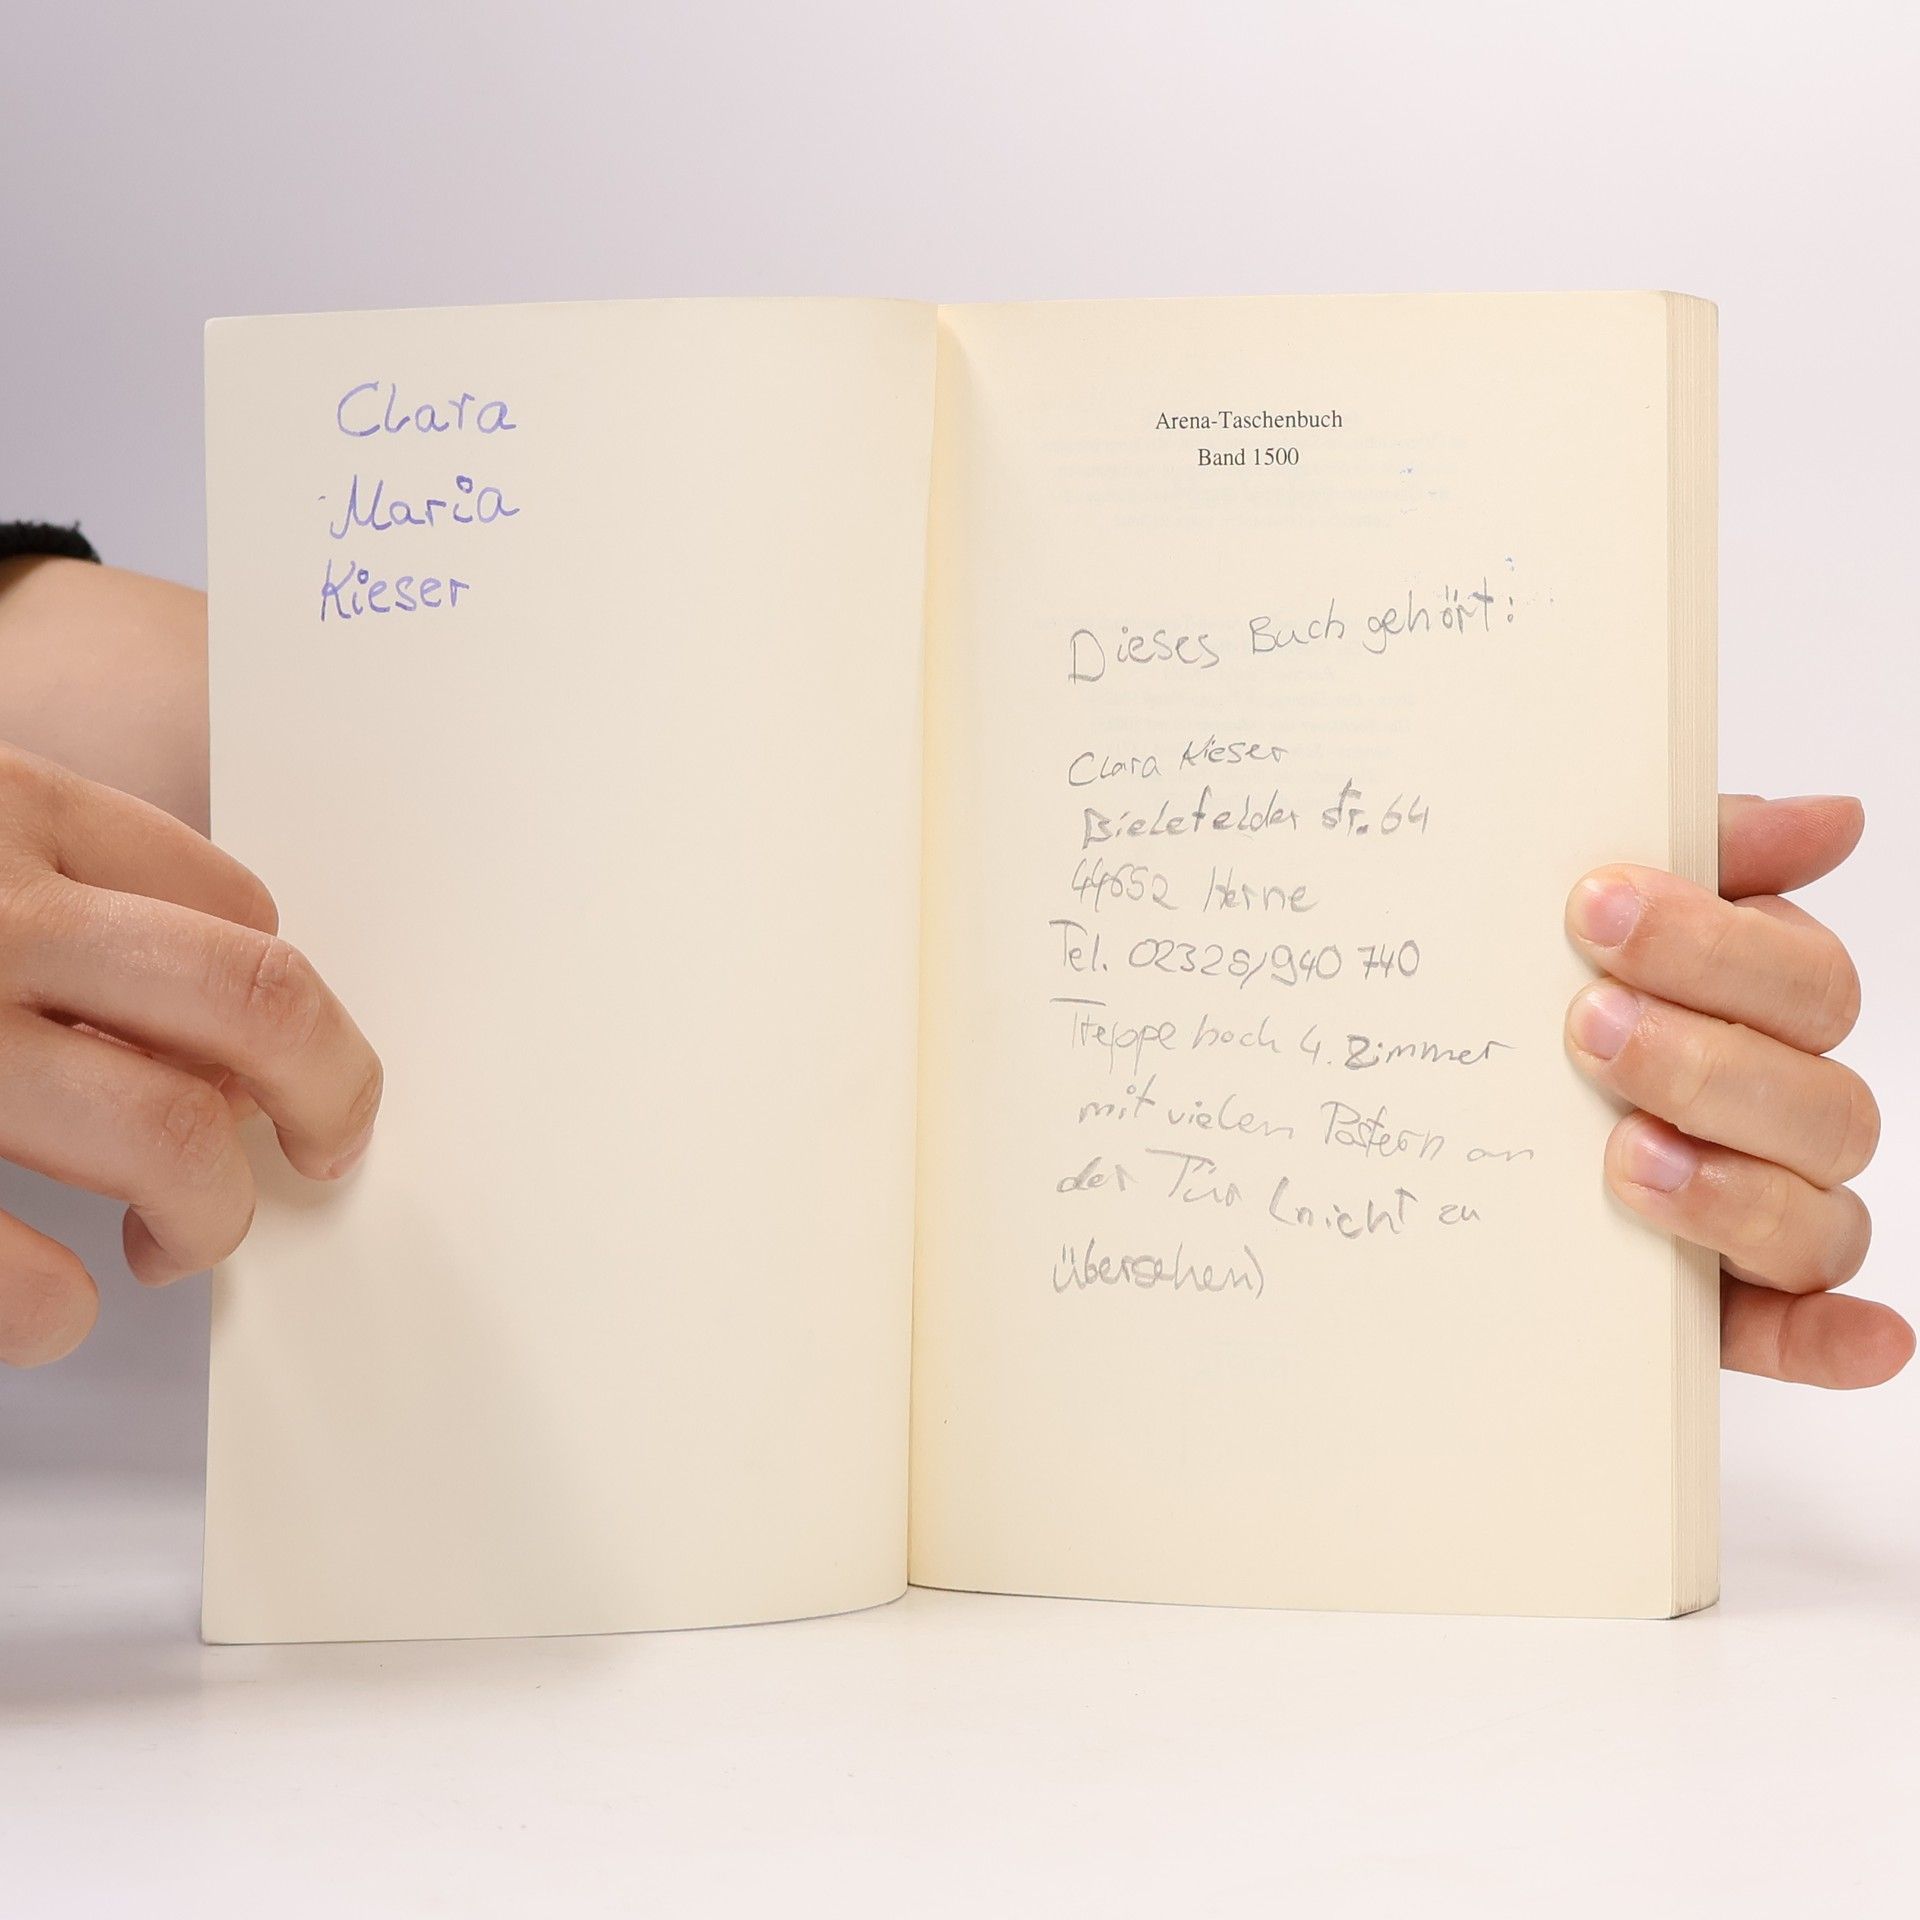 Clara
Maria
Kieser
Arena-Taschenbuch
Band 1500
Dieses Buch gehört:
Clara Kieser
Bielefelder str. 64
44652 Herne
Tel. 02325/940 740
Treppe hoch 4. Zimmer
mit vielen Postern an
der Tür (nicht zu
übersehen)